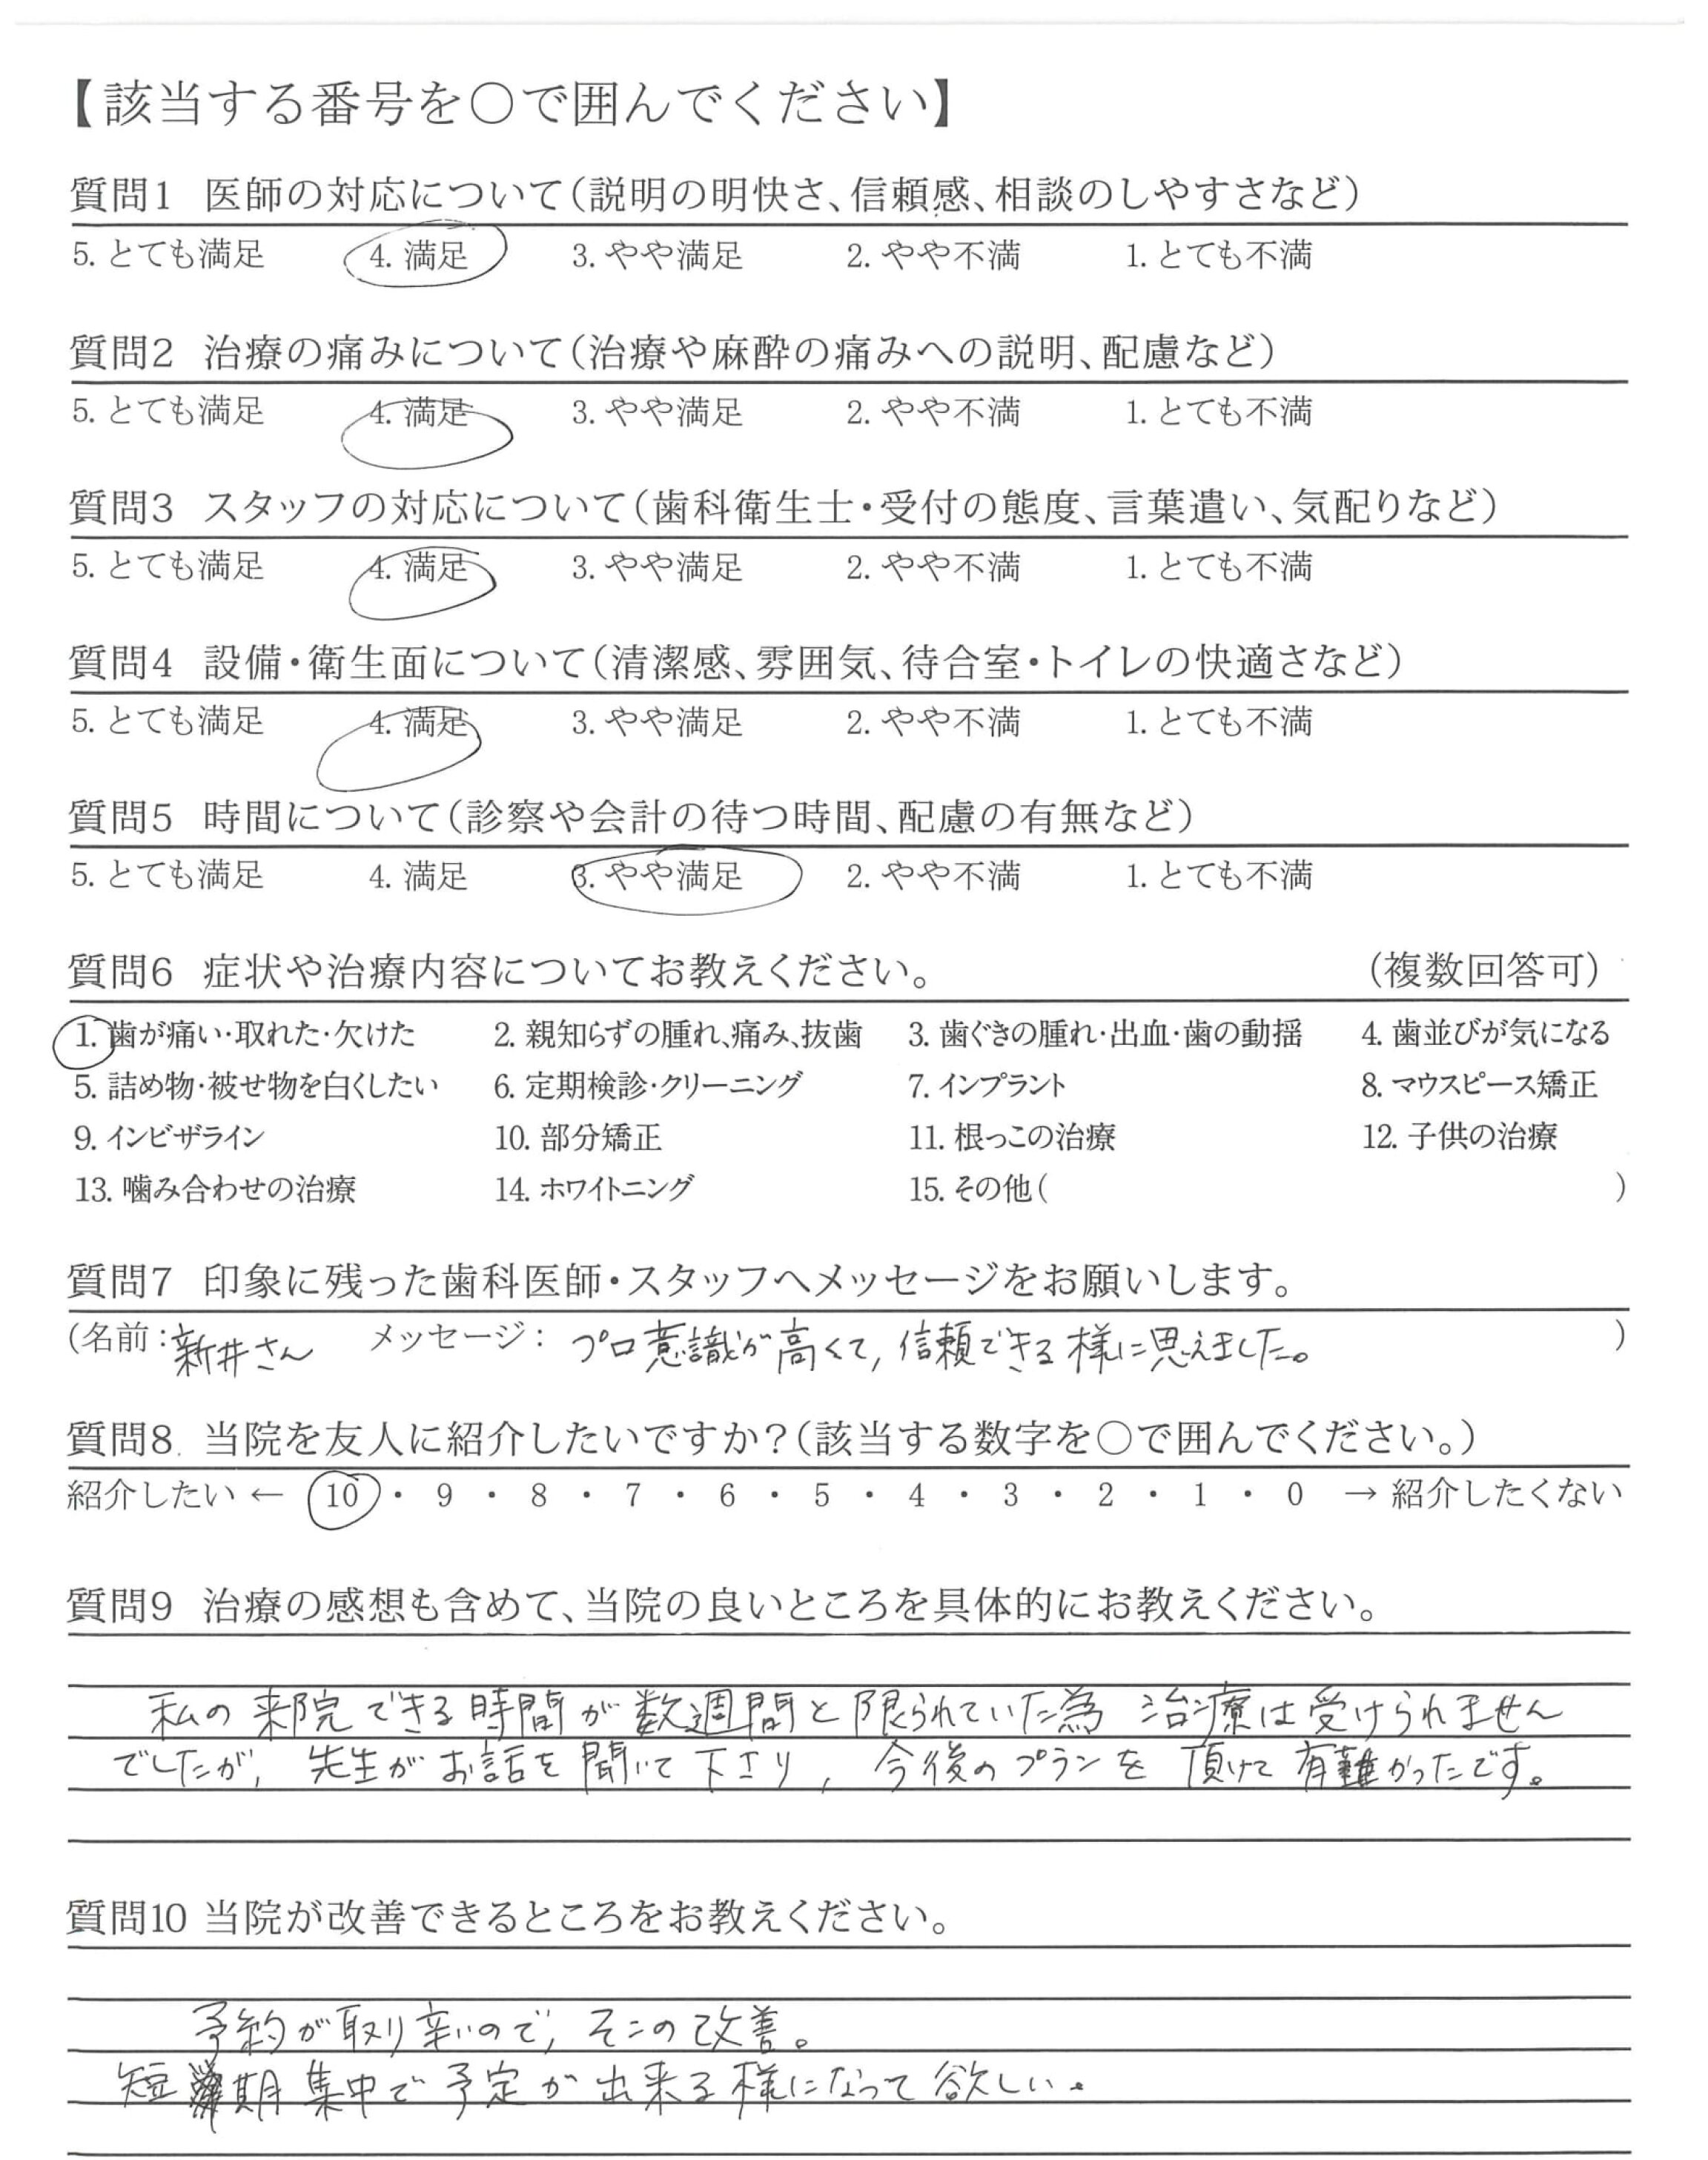 【該当する番号を○で囲んでください】
質問1 医師の対応について（説明の明快さ、信頼感、相談のしやすさなど）
5. とても満足 4. 満足 3. やや満足 2. やや不満 1. とても不満
質問2 治療の痛みについて（治療や麻酔の痛みへの説明、配慮など）
5. とても満足 4. 満足 3. やや満足 2. やや不満 1. とても不満
質問3 スタッフの対応について（歯科衛生士・受付の態度、言葉遣い、気配りなど）
5. とても満足 4. 満足 3. やや満足 2. やや不満 1. とても不満
質問4 設備・衛生面について（清潔感、雰囲気、待合室・トイレの快適さなど）
5. とても満足 4. 満足 3. やや満足 2. やや不満 1. とても不満
質問5 時間について（診察や会計の待つ時間、配慮の有無など）
5. とても満足 4. 満足 3. やや満足 2. やや不満 1. とても不満
質問6 症状や治療内容についてお教えください。 （複数回答可）
1. 歯が痛い・取れた・欠けた 2. 親知らずの腫れ、痛み、抜歯 3. 歯ぐきの腫れ・出血・歯の動揺 4. 歯並びが気になる
5. 詰め物・被せ物を白くしたい 6. 定期検診・クリーニング 7. インプラント 8. マウスピース矯正
9. インビザライン 10. 部分矯正 11. 根っこの治療 12. 子供の治療
13. 噛み合わせの治療 14. ホワイトニング 15. その他（ ）
質問7 印象に残った歯科医師・スタッフへメッセージをお願いします。
（名前：新井さん メッセージ： プロ意識が高くて, 信頼できる様に思えました。 ）
質問8. 当院を友人に紹介したいですか？（該当する数字を○で囲んでください。）
紹介したい ← 10 ・ 9 ・ 8 ・ 7 ・ 6 ・ 5 ・ 4 ・ 3 ・ 2 ・ 1 ・ 0 → 紹介したくない
質問9 治療の感想も含めて、当院の良いところを具体的にお教えください。
私の来院できる時間が数週間と限られていた為 治療は受けられません
でしたが, 先生がお話を聞いて下さり, 今後のプランを頂けて有難かったです。
質問10 当院が改善できるところをお教えください。
予約が取り辛いので, そこの改善。
短期集中で予定が出来る様になって欲しい。